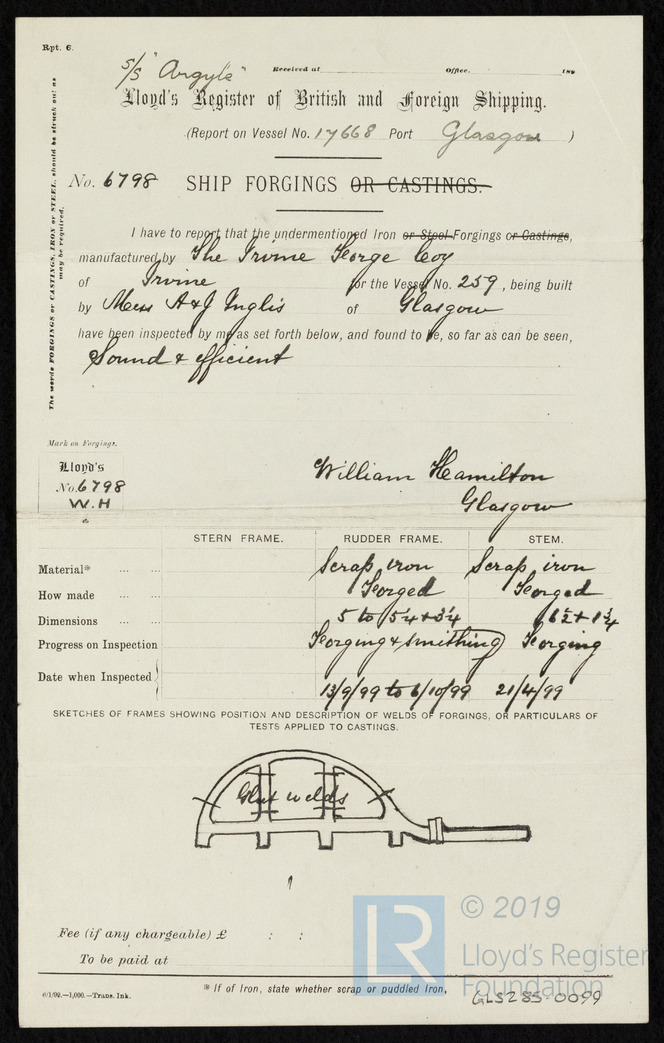 Rpt. 6.
S/S "Argyle"
Received at Office. 189
Lloyd's Register of British and Foreign Shipping.
(Report on Vessel No. 17668 Port Glasgow )
No. 6798 SHIP FORGINGS OR CASTINGS.
The words FORGINGS or CASTINGS, IRON or STEEL, should be struck out as
may be required.
I have to report that the undermentioned Iron or Steel Forgings or Castings,
manufactured by The Irvine Forge Coy
of Irvine for the Vessel No. 259, being built
by Mess A & J Inglis of Glasgow
have been inspected by me as set forth below, and found to be, so far as can be seen,
Sound & efficient
Mark on Forgings.
Lloyd's
No. 6798
W.H
William Hamilton
Glasgow
STERN FRAME. RUDDER FRAME. STEM.
Material* ... ... Scrap iron Scrap iron
How made ... ... Forged Forged
Dimensions ... ... 5 to 5¼ + 3¼ 6½ + 1¾
Progress on Inspection Forging & smithing Forging
Date when Inspected 13/9/99 to 6/10/99 21/4/99
SKETCHES OF FRAMES SHOWING POSITION AND DESCRIPTION OF WELDS OF FORGINGS, OR PARTICULARS OF
TESTS APPLIED TO CASTINGS.
Glut welds
Fee (if any chargeable) £ : :
To be paid at
* If of Iron, state whether scrap or puddled Iron.
6/1/99.—1,000.—Trans. Ink.
LR
© 2019
Lloyd's Register
Foundation
GLS285-0099